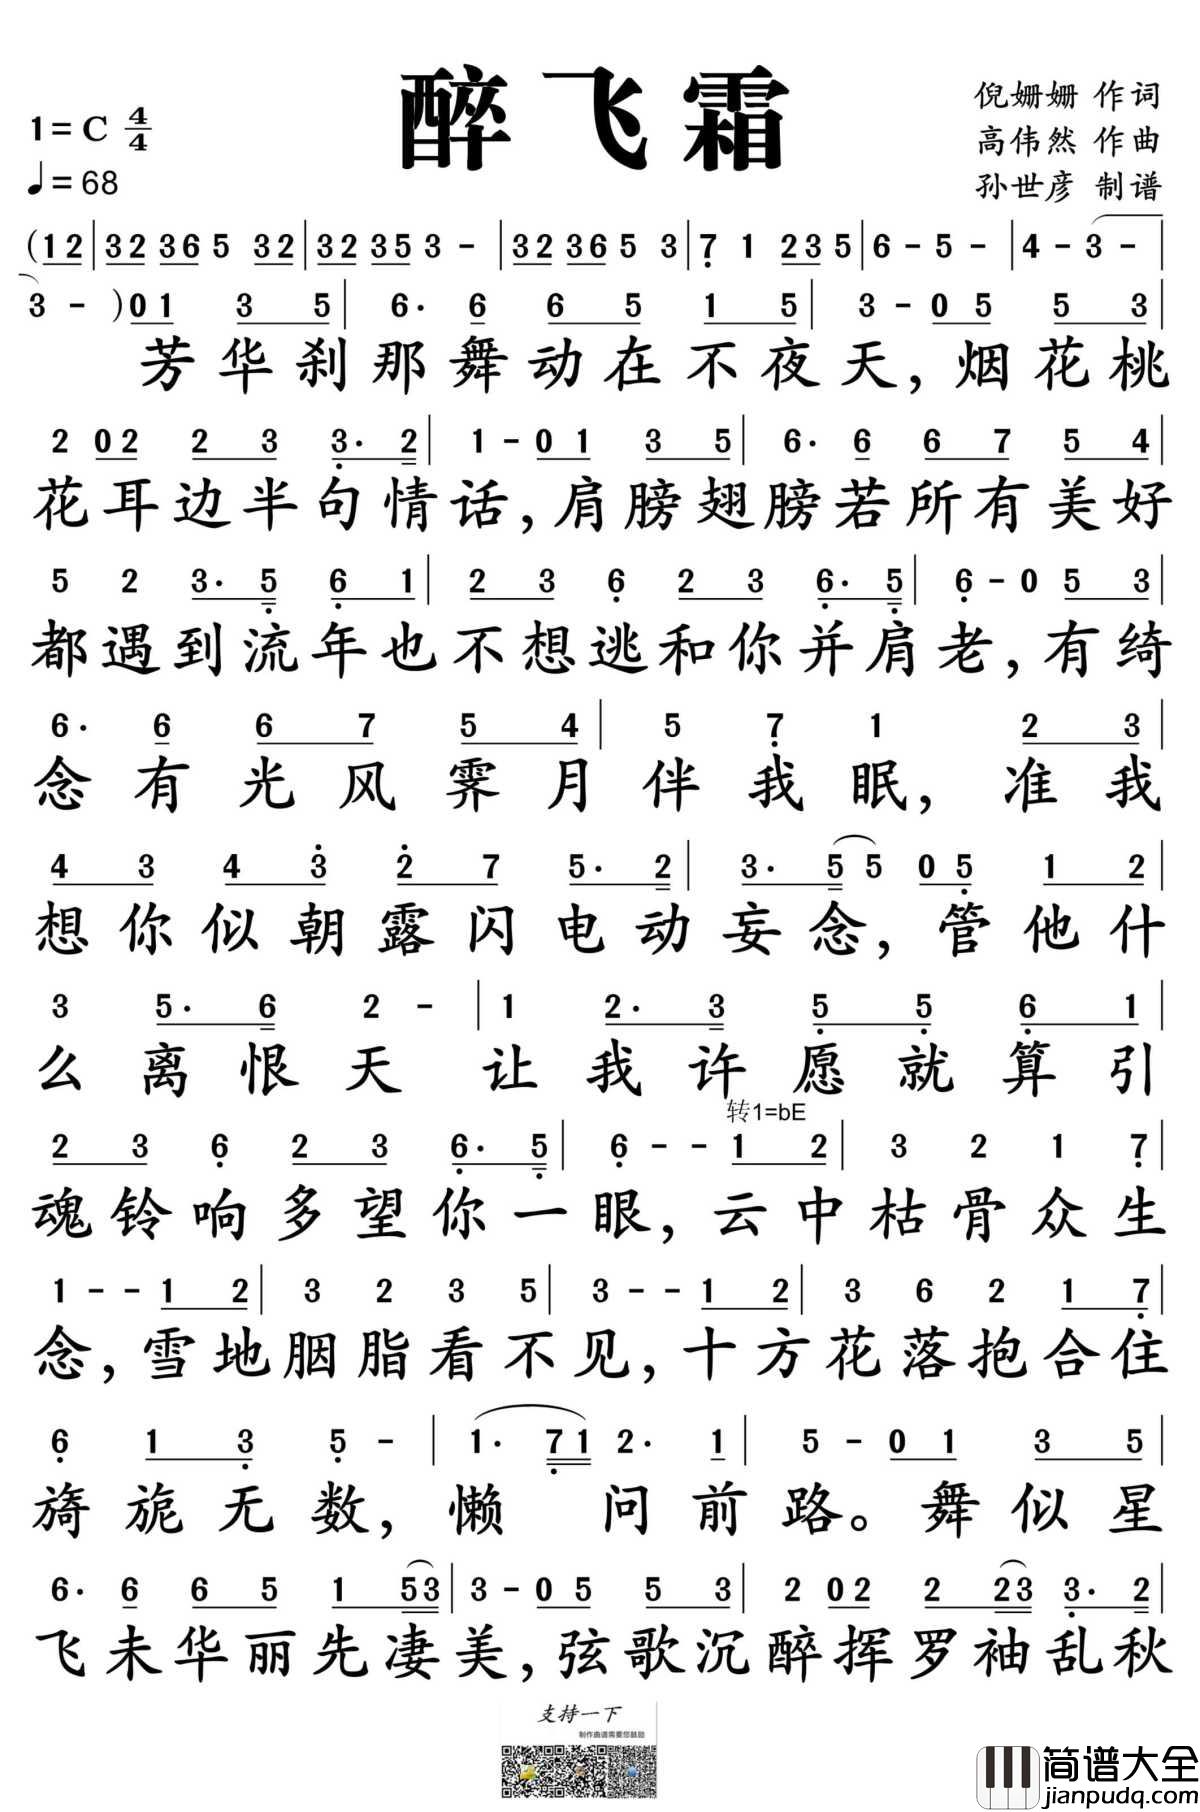 醉飞霜
1=C 4/4
♩=68
倪姗姗 作词
高伟然 作曲
孙世彦 制谱
(12|32 36 5 32|32 35 3 -|32 36 5 3|7 1 23 5|6 - 5 -|4 - 3 -|
3 - )01 3 5|6· 6 6 5 1 5|3 - 0 5 5 3|
芳华刹那舞动在不夜天,烟花桃
2 02 2 3 3· 2|1 - 0 1 3 5|6· 6 6 7 5 4|
花耳边半句情话,肩膀翅膀若所有美好
5 2 3· 5 6 1|2 3 6 2 3 6· 5|6 - 0 5 3|
都遇到流年也不想逃和你并肩老,有绮
6· 6 6 7 5 4|5 7 1 2 3|
念有光风霁月伴我眠,准我
4 3 4 3 2 7 5· 2|3· 5 5 0 5 1 2|
想你似朝露闪电动妄念,管他什
3 5· 6 2 -|1 2· 3 5 5 6 1|
么离恨天让我许愿就算引
转1=bE
2 3 6 2 3 6· 5|6 - - 1 2|3 2 1 7|
魂铃响多望你一眼,云中枯骨众生
1 - - 1 2|3 2 3 5|3 - - 1 2|3 6 2 1 7|
念,雪地胭脂看不见,十方花落抱合住
6 1 3 5 -|1· 71 2· 1|5 - 0 1 3 5|
旖旎无数,懒问前路。舞似星
6· 6 6 5 1 53|3 - 0 5 5 3|2 02 2 23 3· 2|
飞未华丽先凄美,弦歌沉醉挥罗袖乱秋
支持一下
制作曲谱需要您鼓励
简谱大全
jianpudq.com